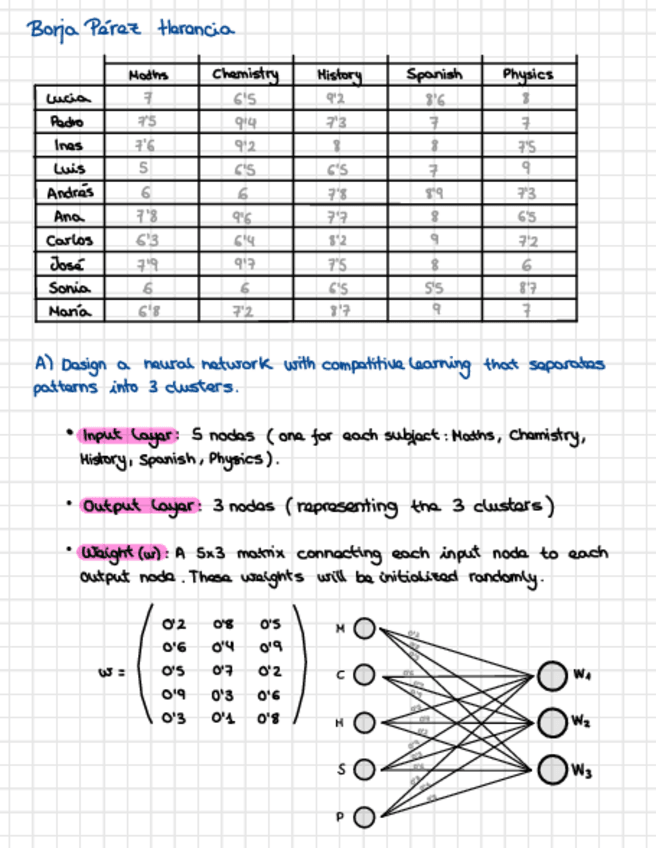 Borja Pérez Herencia
Maths Chemistry History Spanish Physics
Lucia 7 6'5 9'2 8'6 8
Pedro 7'5 9'4 7'3 7 7
Ines 7'6 9'2 8 8 7'5
Luis 5 6'5 6'5 7 9
Andrés 6 6 7'8 8'9 7'3
Ana 7'8 9'6 7'7 8 6'5
Carlos 6'3 6'4 8'2 9 7'2
José 7'9 9'7 7'5 8 6
Sonia 6 6 6'5 5'5 8'7
María 6'8 7'2 8'7 9 7
A) Design a neural network with competitive learning that separates
patterns into 3 clusters.
• Input Layer: 5 nodes (one for each subject: Maths, Chemistry,
History, Spanish, Physics).
• Output Layer: 3 nodes (representing the 3 clusters)
• Weight (w): A 5x3 matrix connecting each input node to each
output node. These weights will be initialized randomly.
w =
0'2 0'8 0'5
0'6 0'4 0'9
0'5 0'7 0'2
0'9 0'3 0'6
0'3 0'1 0'8
M
C
H
S
P
W1
W2
W3